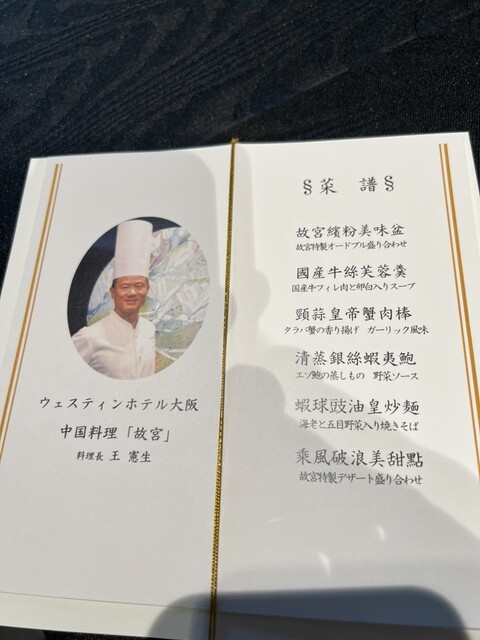 ウェスティンホテル大阪
中国料理「故宮」
料理長 王 憲生
§菜 譜§
故宮繽粉美味盆
故宮特製オードブル盛り合わせ
國産牛絲芙蓉羹
国産牛フィレ肉と卵白入りスープ
頸蒜皇帝蟹肉棒
タラバ蟹の香り揚げ ガーリック風味
清蒸銀絲蝦夷鮑
エゾ鮑の蒸しもの 野菜ソース
蝦球豉油皇炒麺
海老と五目野菜入り焼きそば
乘風破浪美甜點
故宮特製デザート盛り合わせ